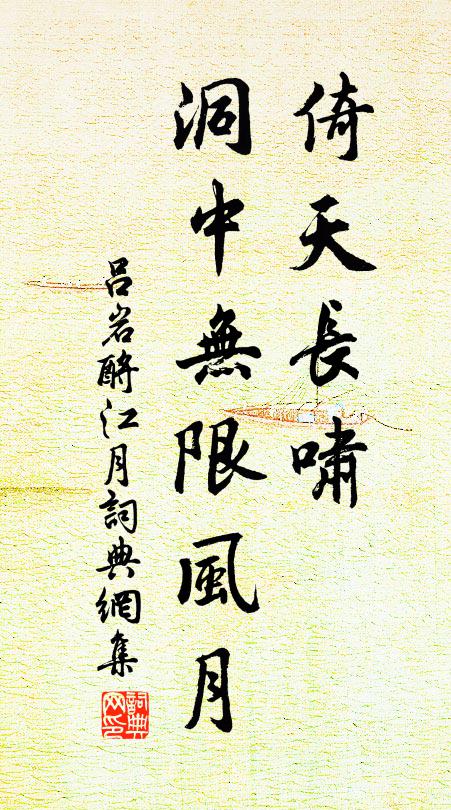 倚天長嘯
洞中無限風月
呂岩酹江月詞典網集
詞典網印